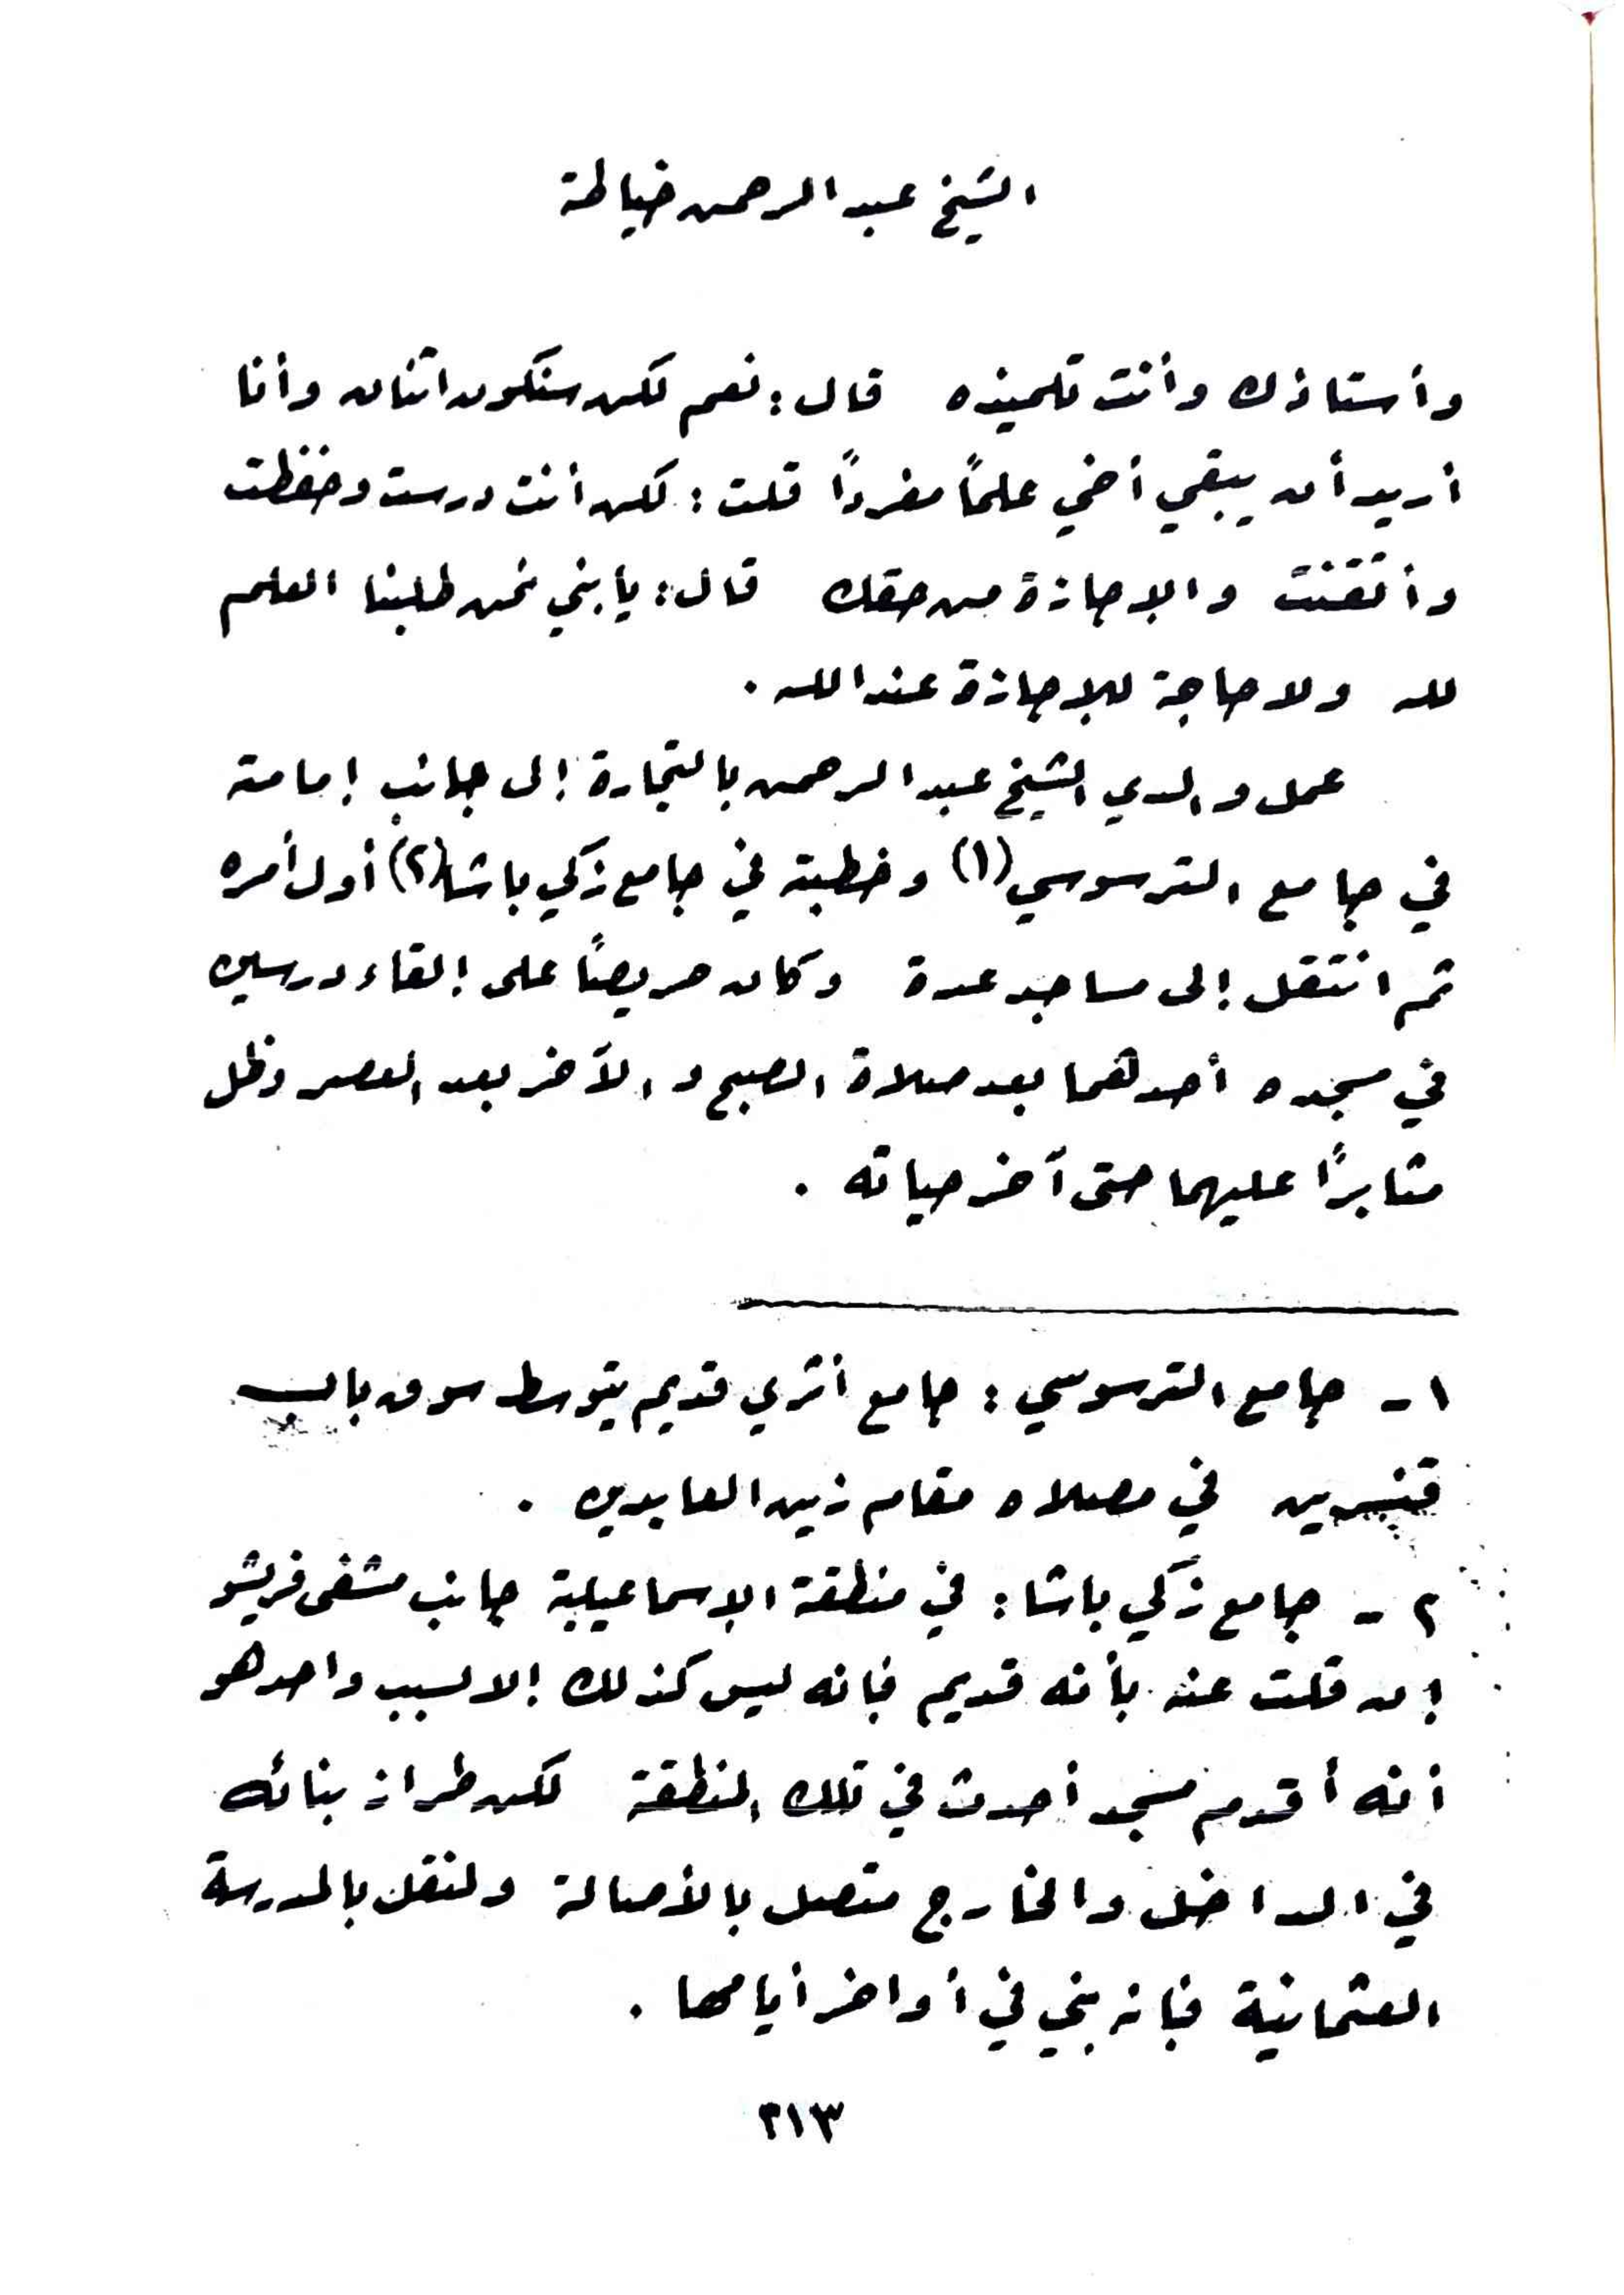 الشيخ عبد الرحمن خياطة
وأستاذك وأنت تلميذه قال : نعم لكن سنكون اثنان وأنا
أريد أن يبقى أخي علماً مفرداً قلت : لكن أنت درست وحفظت
وأتقنت والإجازة من حقك قال : يا بني نحن طلبنا العلم
لله ولا حاجة للإجازة عند الله .
عمل والدي الشيخ عبد الرحمن بالتجارة إلى جانب إمامته
في جامع الترسوسي (١) وخطبته في جامع زكي باشا (٢) أول أمره
ثم انتقل إلى مساجد عدة وكان حريصاً على إلقاء درسين
في مسجده أحدهما بعد صلاة الصبح والآخر بعد العصر وظل
مثابراً عليهما حتى آخر حياته .
١ - جامع الترسوسي : جامع أثري قديم يتوسط سوق باب
قنسرين في مصلاه مقام زين العابدين .
٢ - جامع زكي باشا : في منطقة الإسماعيلية جانب مشفى فريشو
إن قلت عنه بأنه قديم فانه ليس كذلك إلا لسبب واحد هو
أنه أقدم مسجد أحدث في تلك المنطقة لكن طراز بنائه
في الداخل والخارج متصل بالأصالة ولنقل بالمدرسة
العثمانية فبانه بني في أواخر أيامها .
٢١٣